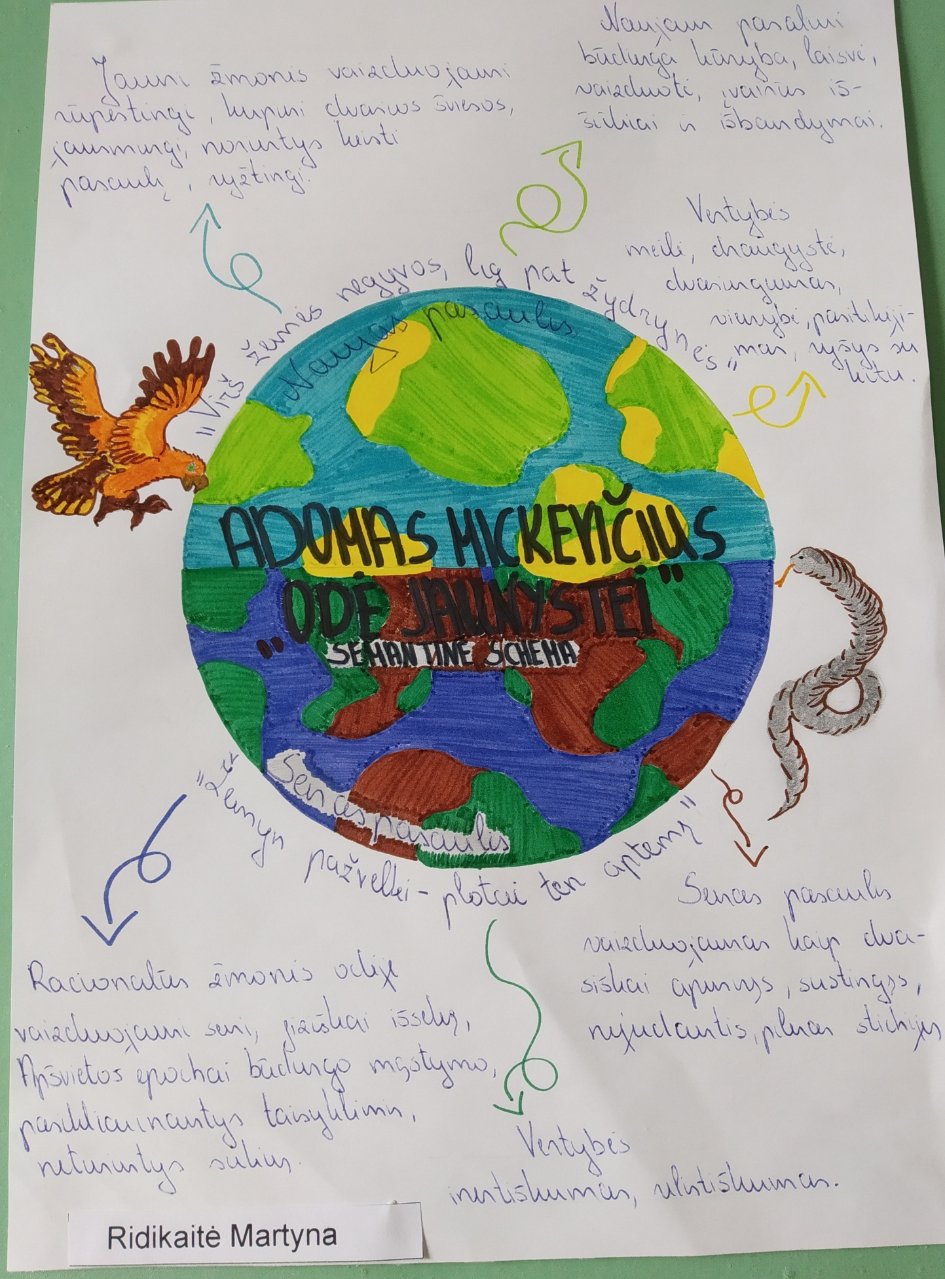 Jauni žmonės vaizduojami
rūpestingi, kupini dvasios šviesos,
jausmingi, norintys keisti
pasaulį, ryžtingi.
Naujam pasauliui
būdinga kūryba, laisvė,
vaizduotė, įvairūs iš-
šūkiai ir išbandymai.
Vertybės
meilė, draugystė,
dvasingumas,
vienybė, pasitikėji-
mas, ryšys su
kitu.
"Virš žemės negyvos, lig pat žydrynės"
Naujas pasaulis
ADOMAS MICKEVIČIUS
"ODĖ JAUNYSTEI"
SEMANTINĖ SCHEMA
Senas pasaulis
"Žemyn pažvelki - plotai ten aptemę"
Racionalūs žmonės odėje
vaizduojami seni, fiziškai išsekę,
Apšvietos epochai būdingo mąstymo,
pasikliaujantys taisyklėmis,
neturintys sielos.
Senas pasaulis
vaizduojamas kaip dva-
siškai apmiręs, sustingęs,
nejudantis, pilnas stichijų
Vertybės
inertiškumas, elitiškumas.
Ridikaitė Martyna